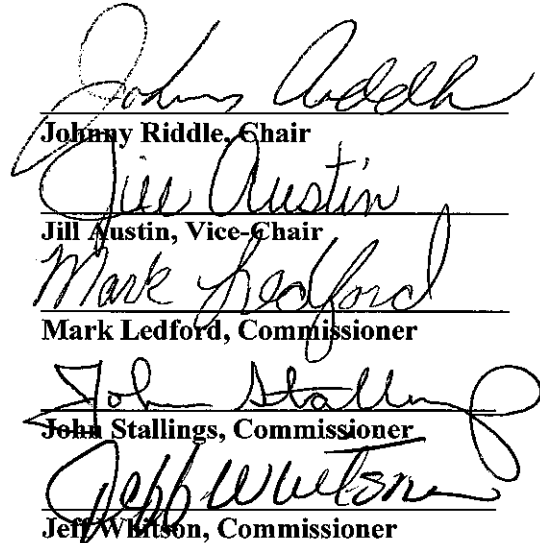 Johnny Riddle
Johnny Riddle, Chair
Jill Austin
Jill Austin, Vice-Chair
Mark Ledford
Mark Ledford, Commissioner
John Stallings
John Stallings, Commissioner
Jeff Whitson
Jeff Whitson, Commissioner